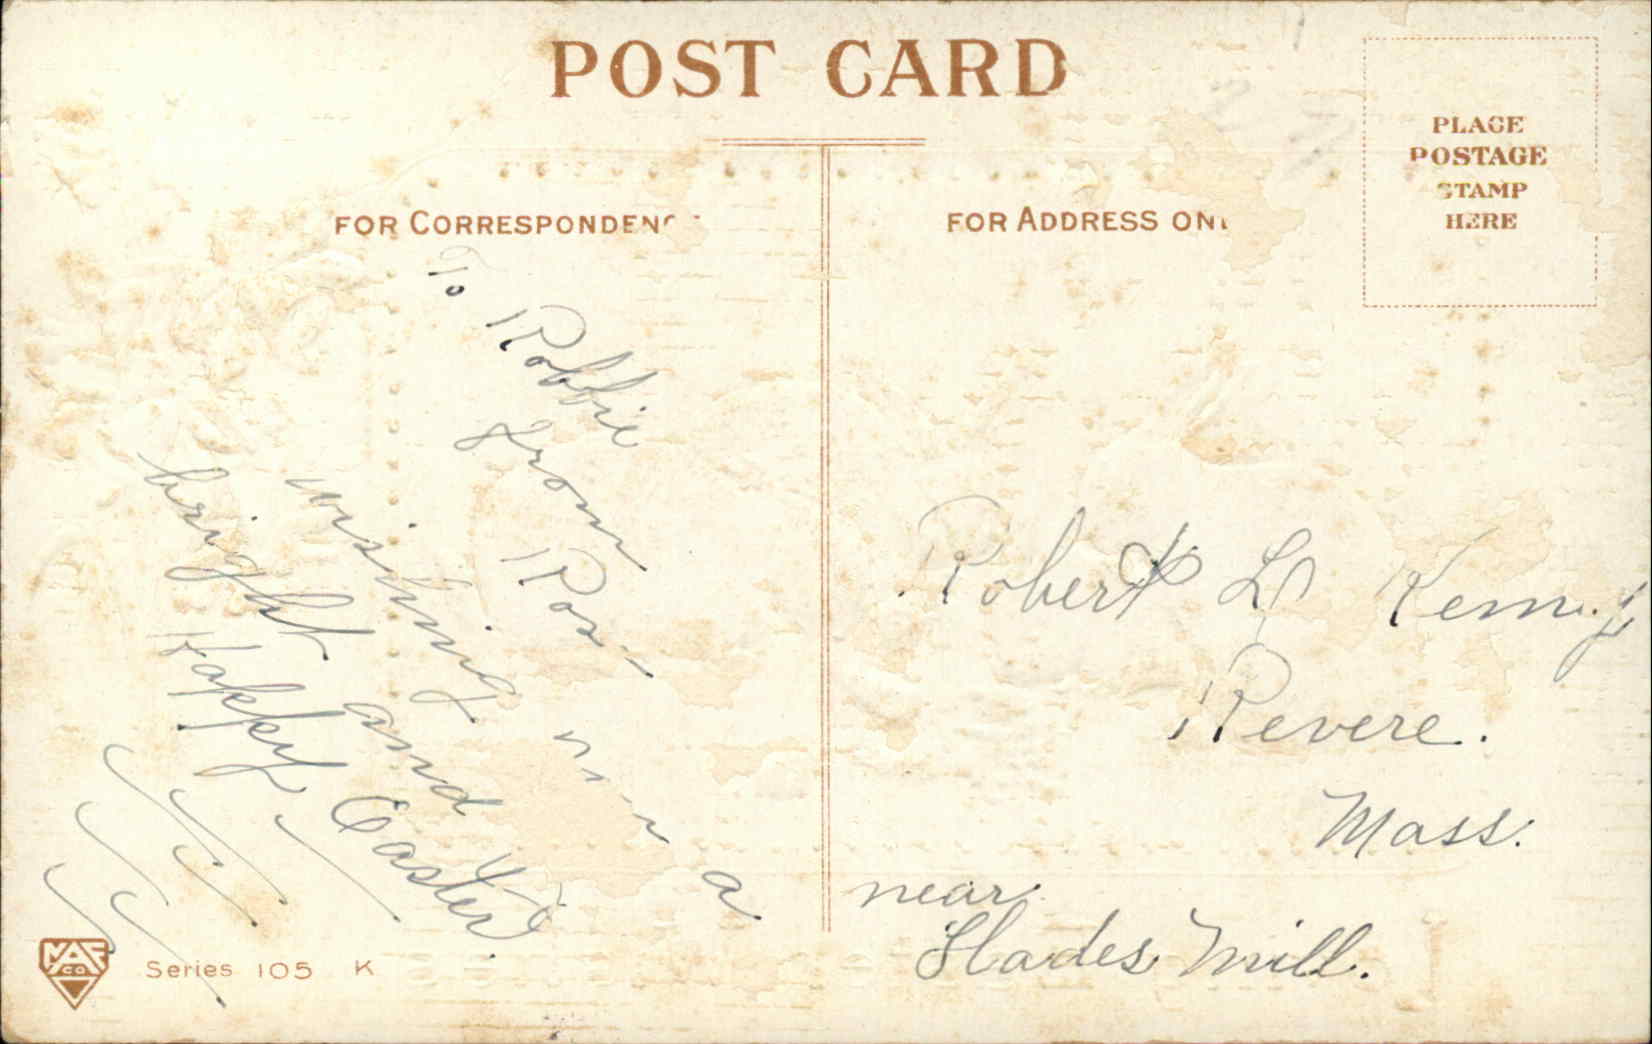 POST CARD
FOR CORRESPONDENC
FOR ADDRESS ONL
PLACE
POSTAGE
STAMP
HERE
To Robbie
from
Ros
wishing a
bright and
Happy Easter.
Robert L Kenny
Revere.
Mass.
near
Slades Mill.
MAF
CO
Series 105 K